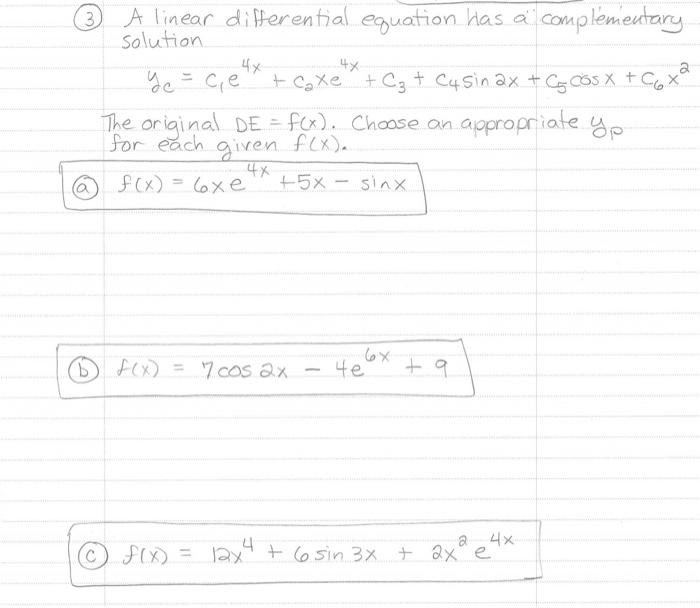 ③ A linear differential equation has a complementary
solution
y_c = c₁e^{4x} + c₂xe^{4x} + C₃ + C₄ sin 2x + C₅ cos x + C₆ x²
The original DE = f(x). Choose an appropriate y_p
for each given f(x).
ⓐ f(x) = 6xe^{4x} + 5x − sin x
ⓑ f(x) = 7 cos 2x − 4e^{6x} + 9
ⓒ f(x) = 12x⁴ + 6 sin 3x + 2x² e^{4x}